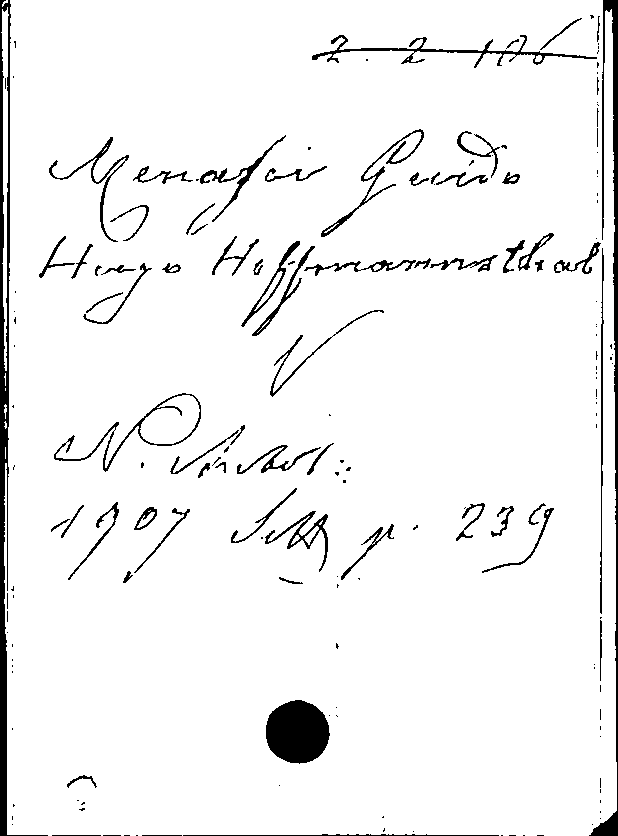 2. 2 106
Menasci Guido
Hugo Hoffmannsthal
V
N. Antol:
1907 Sett p. 239